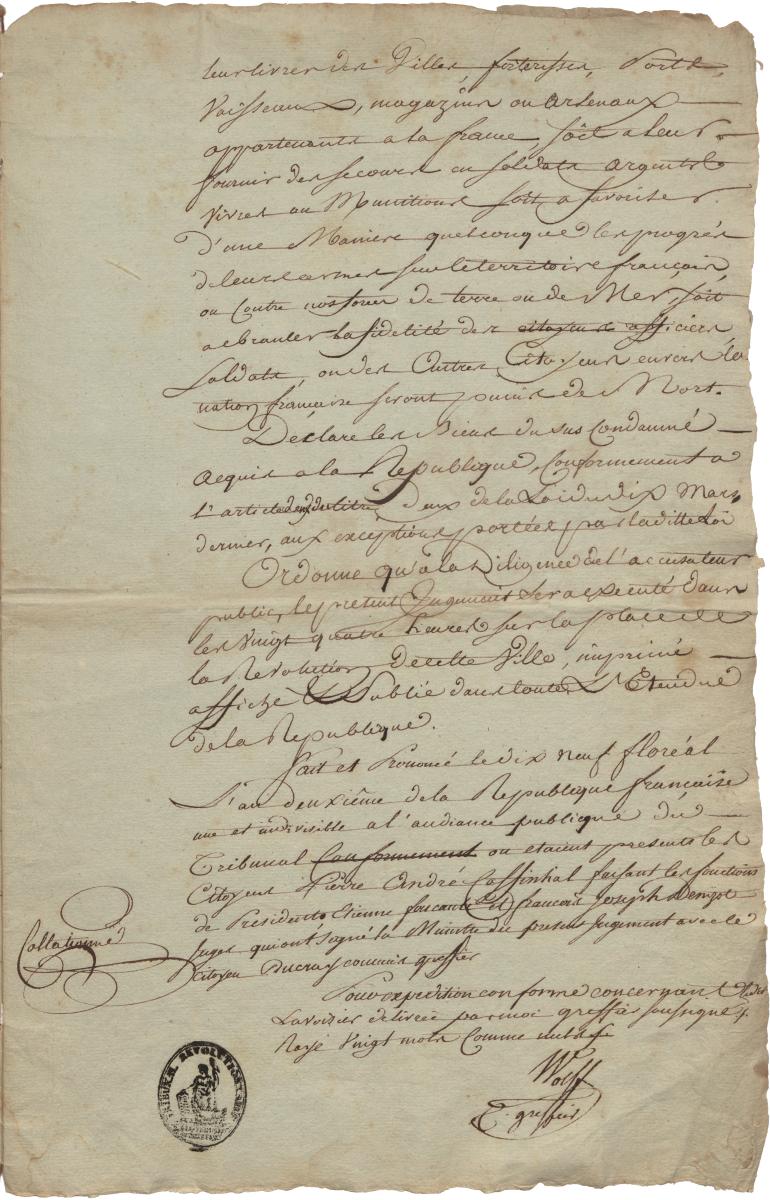 leur livrer des Villes, forteresses, Ports,
Vaisseaux, magazins ou arsenaux
appartenants a la france, soit a leur
fournir des secours en soldats argent
vivres ou Munitions soit a favoriser
d'une Maniere quelconque les progrés
de leurs armes sur le territoire français,
ou Contre nos forces de terre ou de Mer, soit
a ebranler la fidelité des citoyens officiers,
Soldats, ou des Autres Citoyens envers la
nation française seront punis de Mort.
Déclare les Biens du sus Condamné
acquis a la Republique, Conformement a
l'article deux du titre Deux de la Loi du dix Mars
dernier, aux exceptions portées par la ditte Loi
Ordonne qu'a la Diligence de l'accusateur
public, le présent Jugement sera executé dans
les Vingt quatre heures sur la place de
la Revolution de cette Ville, imprimé
affiché & Publié dans toute L'Etendue
de la Republique.
fait et Prononcé le dix neuf floréal
L'an deuxiême de la Republique française
une et indivisible a l'audiance publique du
Tribunal Conformement ou etaient presents les
Citoyens Pierre André Coffinhal faisant les fonctions
de President Etienne foucault et françois Joseph Denizot
Juges qui ont signé la Minutte du present Jugement avec le
Citoyen Ducray commis greffier
Collationné
Pour expedition conforme concernant
Lavoizier delivrée par moi greffier soussigné
Rayé Vingt mots Comme nuls
Wolff
C. greffier
TRIBUNAL REVOLUTIONNAIRE